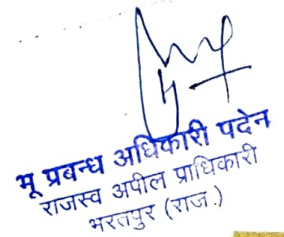 भू प्रबन्ध अधिकारी पदेन
राजस्व अपील प्राधिकारी
भरतपुर (राज.)